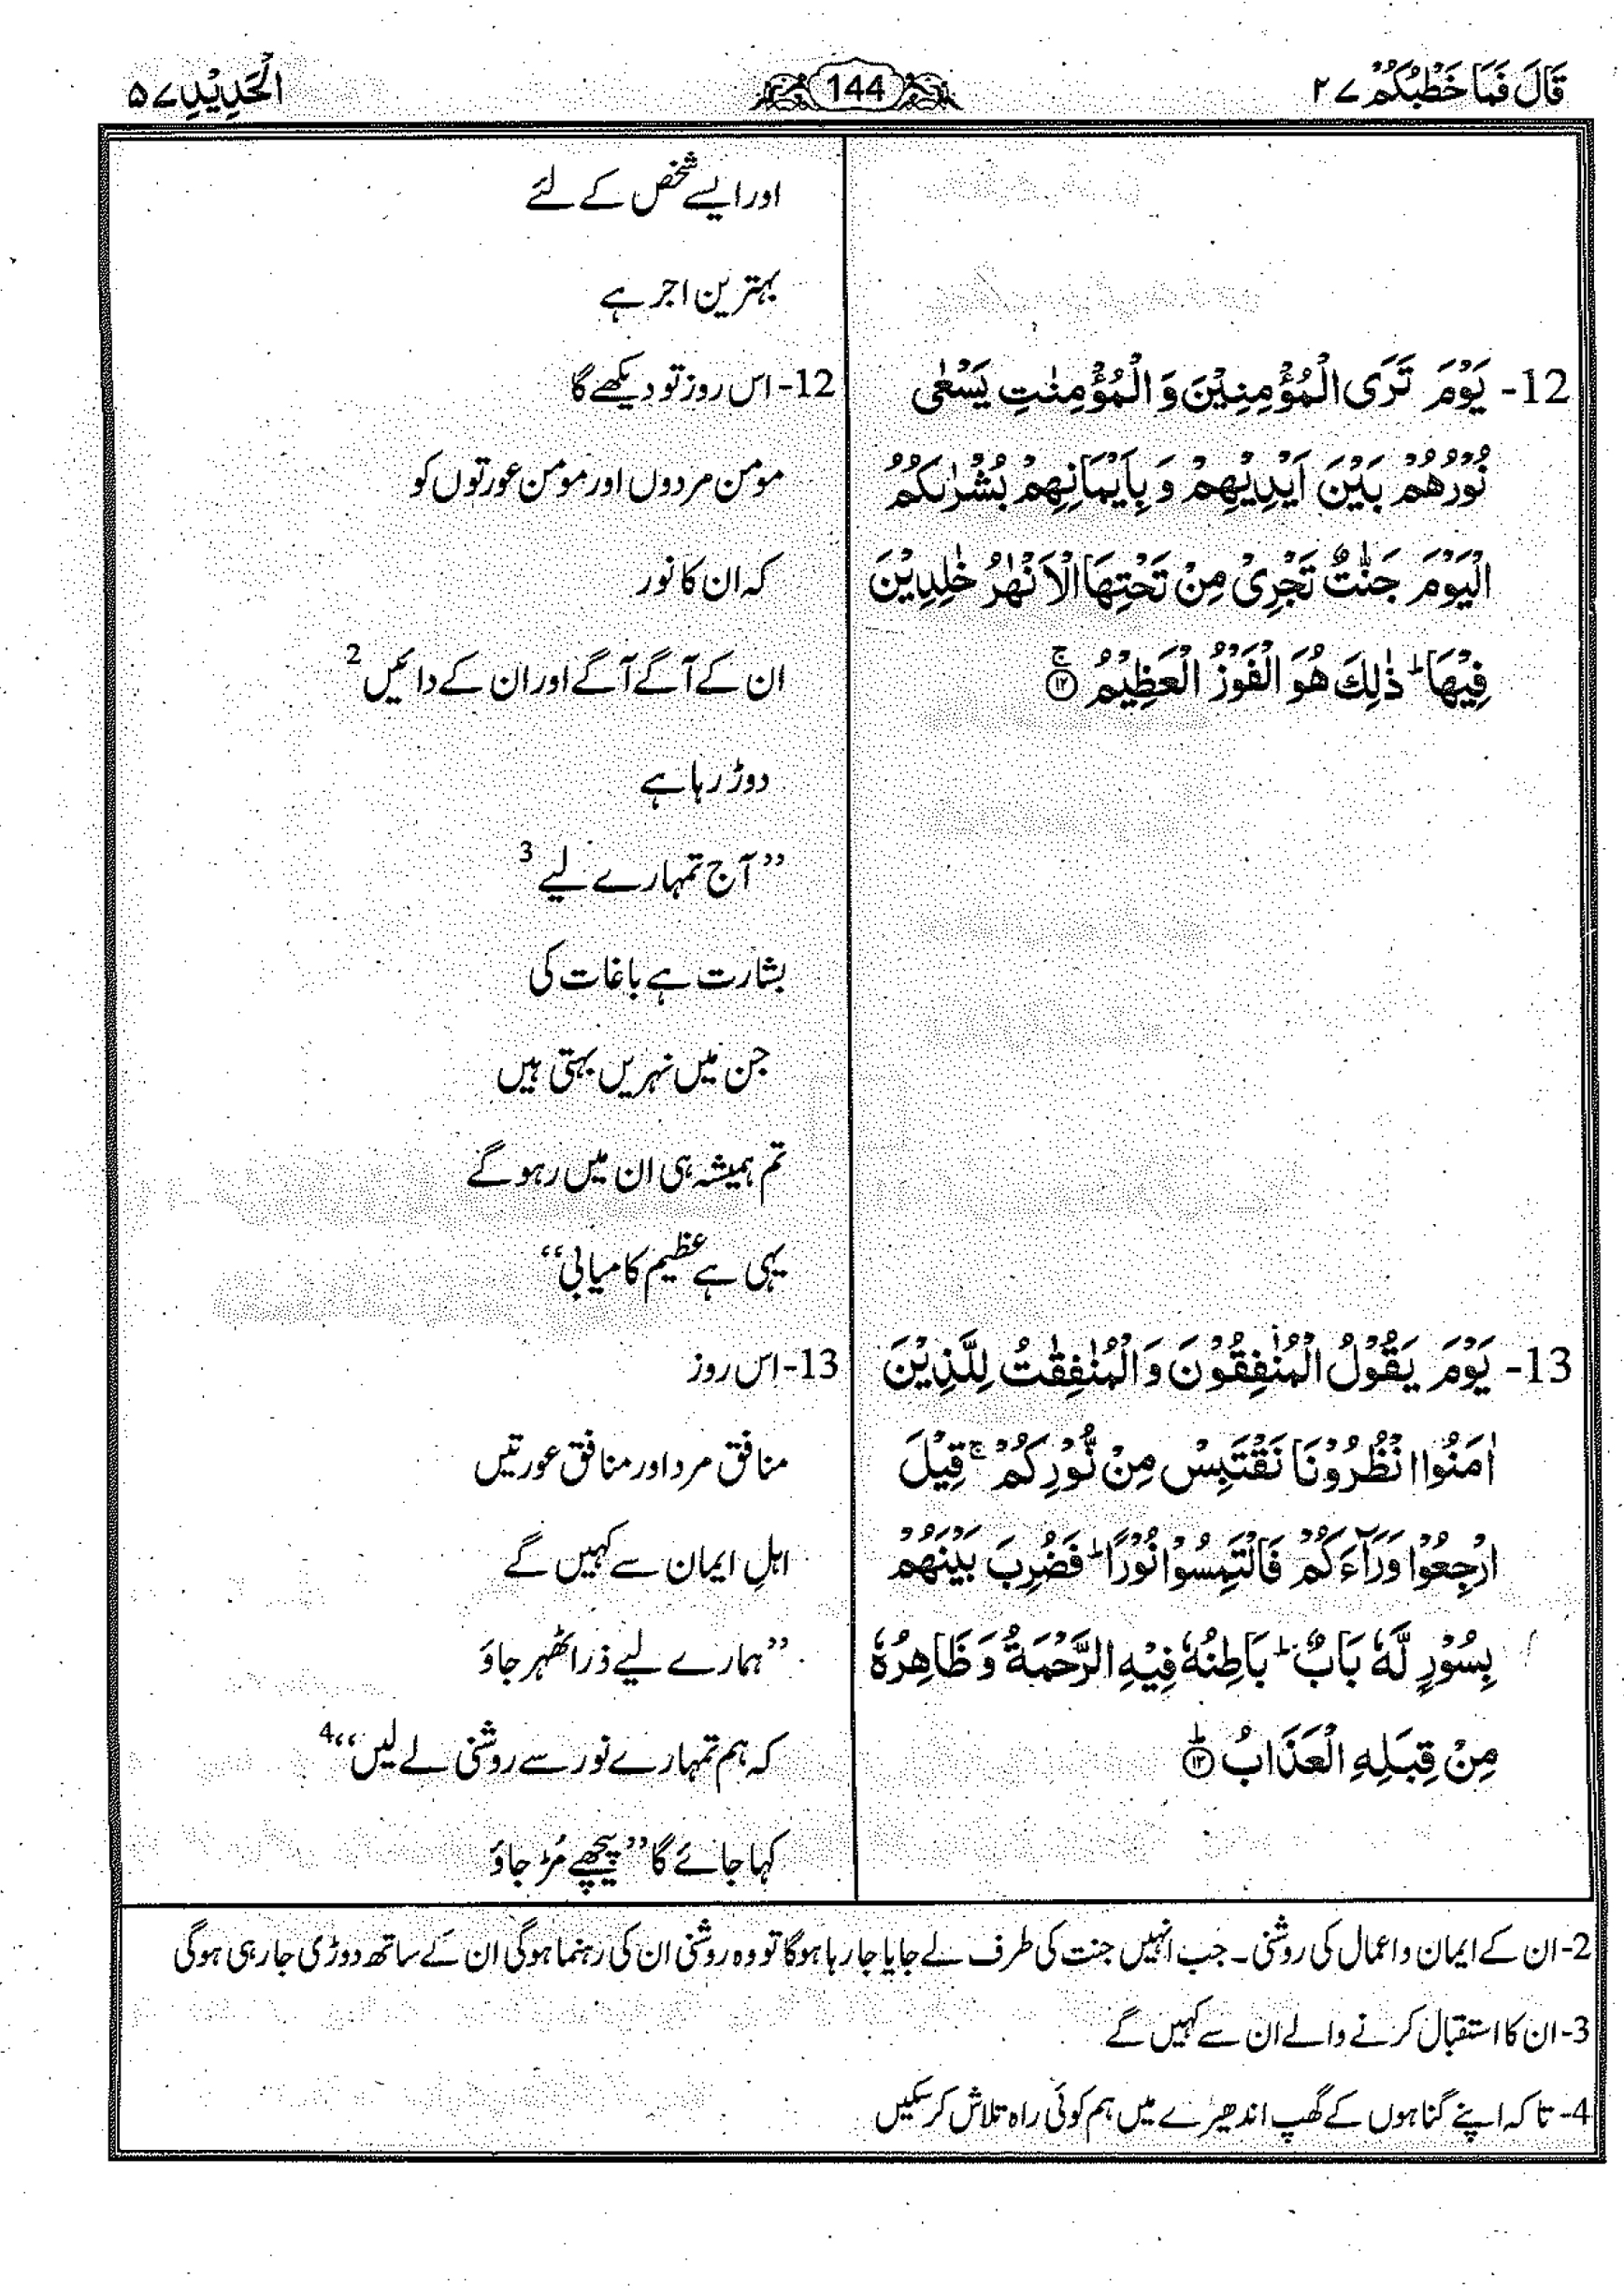 قَالَ فَمَا خَطْبُكُمْ ٢٧
144
اَلْحَدِيْدِ ٥٧
12- يَوْمَ تَرَى الْمُؤْمِنِيْنَ وَ الْمُؤْمِنٰتِ يَسْعٰى
نُوْرُهُمْ بَيْنَ اَيْدِيْهِمْ وَ بِاَيْمَانِهِمْ بُشْرٰىكُمُ
الْيَوْمَ جَنّٰتٌ تَجْرِىْ مِنْ تَحْتِهَا الْاَنْهٰرُ خٰلِدِيْنَ
فِيْهَا ؕ ذٰلِكَ هُوَ الْفَوْزُ الْعَظِيْمُ ۚ ﴿١٢﴾
13- يَوْمَ يَقُوْلُ الْمُنٰفِقُوْنَ وَ الْمُنٰفِقٰتُ لِلَّذِيْنَ
اٰمَنُوا انْظُرُوْنَا نَقْتَبِسْ مِنْ نُّوْرِكُمْ ۚ قِيْلَ
ارْجِعُوْا وَرَآءَكُمْ فَالْتَمِسُوْا نُوْرًا ؕ فَضُرِبَ بَيْنَهُمْ
بِسُوْرٍ لَّهٗ بَابٌ ؕ بَاطِنُهٗ فِيْهِ الرَّحْمَةُ وَ ظَاهِرُهٗ
مِنْ قِبَلِهِ الْعَذَابُ ؕ ﴿١٣﴾
اور ایسے شخص کے لئے
بہترین اجر ہے
12- اس روز تو دیکھے گا
مومن مردوں اور مومن عورتوں کو
کہ ان کا نور
ان کے آگے آگے اور ان کے دائیں 2
دوڑ رہا ہے
”آج تمہارے لیے 3
بشارت ہے باغات کی
جن میں نہریں بہتی ہیں
تم ہمیشہ ہی ان میں رہو گے
یہی ہے عظیم کامیابی“
13- اس روز
منافق مرد اور منافق عورتیں
اہلِ ایمان سے کہیں گے
”ہمارے لیے ذرا ٹھہر جاؤ
کہ ہم تمہارے نور سے روشنی لے لیں“ 4
کہا جائے گا ”پیچھے مُڑ جاؤ
2- ان کے ایمان و اعمال کی روشنی ۔ جب انہیں جنت کی طرف لے جایا جا رہا ہوگا تو وہ روشنی ان کی رہنما ہوگی ان کے ساتھ دوڑی جا رہی ہوگی
3- ان کا استقبال کرنے والے ان سے کہیں گے
4- تا کہ اپنے گناہوں کے گھپ اندھیرے میں ہم کوئی راہ تلاش کر سکیں